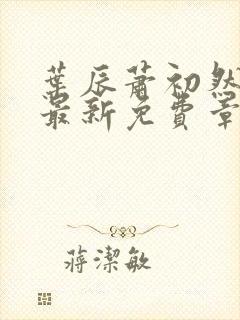 葉辰蕭初然
最新免費章
蔣潔敏